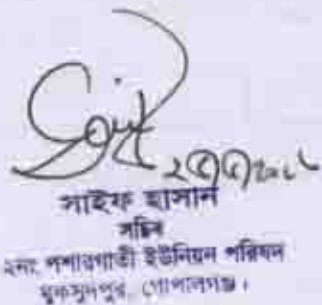 সাইফ হাসান
সচিব
২নং পশারগাতী ইউনিয়ন পরিষদ
মুকসুদপুর, গোপালগঞ্জ।